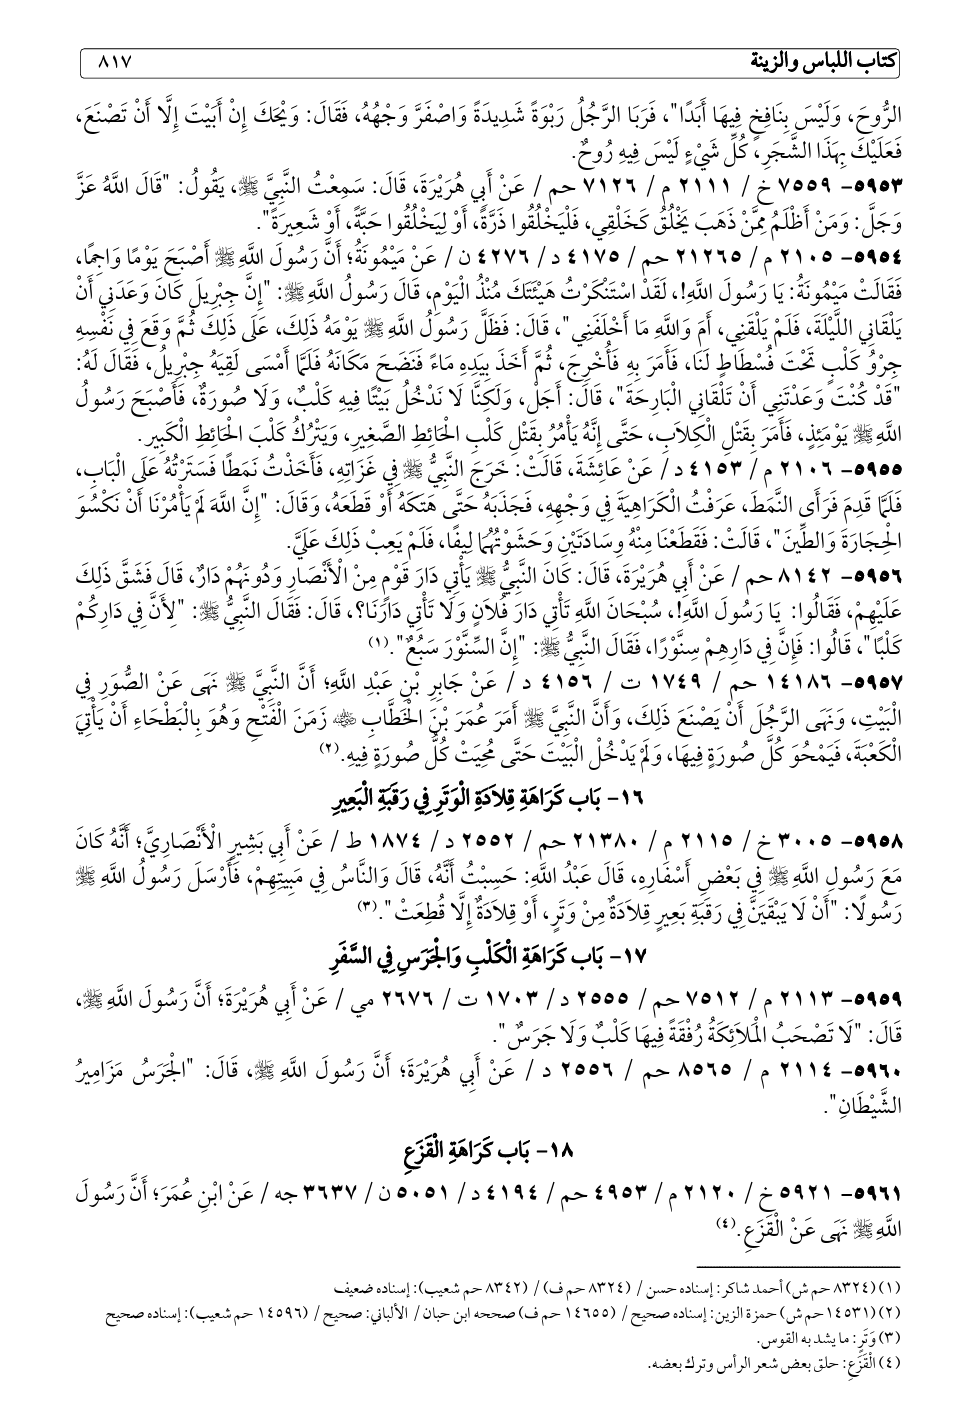 كتاب اللباس والزينة ٨١٧
الرُّوحَ، وَلَيْسَ بِنَافِخٍ فِيهَا أَبَدًا"، فَرَبَا الرَّجُلُ رَبْوَةً شَدِيدَةً وَاصْفَرَّ وَجْهُهُ، فَقَالَ: وَيْحَكَ إِنْ أَبَيْتَ إِلَّا أَنْ تَصْنَعَ،
فَعَلَيْكَ بِهَذَا الشَّجَرِ، كُلِّ شَيْءٍ لَيْسَ فِيهِ رُوحٌ.
٥٩٥٣- ٧٥٥٩ خ / ٢١١١ م / ٧١٢٦ حم / عَنْ أَبِي هُرَيْرَةَ، قَالَ: سَمِعْتُ النَّبِيَّ ﷺ، يَقُولُ: "قَالَ اللَّهُ عَزَّ
وَجَلَّ: وَمَنْ أَظْلَمُ مِمَّنْ ذَهَبَ يَخْلُقُ كَخَلْقِي، فَلْيَخْلُقُوا ذَرَّةً، أَوْ لِيَخْلُقُوا حَبَّةً، أَوْ شَعِيرَةً".
٥٩٥٤- ٢١٠٥ م / ٢١٢٦٥ حم / ٤١٧٥ د / ٤٢٧٦ ن / عَنْ مَيْمُونَةُ؛ أَنَّ رَسُولَ اللَّهِ ﷺ أَصْبَحَ يَوْمًا وَاجِمًا،
فَقَالَتْ مَيْمُونَةُ: يَا رَسُولَ اللَّهِ!، لَقَدْ اسْتَنْكَرْتُ هَيْئَتَكَ مُنْذُ الْيَوْمِ، قَالَ رَسُولُ اللَّهِ ﷺ: "إِنَّ جِبْرِيلَ كَانَ وَعَدَنِي أَنْ
يَلْقَانِي اللَّيْلَةَ، فَلَمْ يَلْقَنِي، أَمَ وَاللَّهِ مَا أَخْلَفَنِي"، قَالَ: فَظَلَّ رَسُولُ اللَّهِ ﷺ يَوْمَهُ ذَلِكَ، عَلَى ذَلِكَ ثُمَّ وَقَعَ فِي نَفْسِهِ
جِرْوُ كَلْبٍ تَحْتَ فُسْطَاطٍ لَنَا، فَأَمَرَ بِهِ فَأُخْرِجَ، ثُمَّ أَخَذَ بِيَدِهِ مَاءً فَنَضَحَ مَكَانَهُ فَلَمَّا أَمْسَى لَقِيَهُ جِبْرِيلُ، فَقَالَ لَهُ:
"قَدْ كُنْتَ وَعَدْتَنِي أَنْ تَلْقَانِي الْبَارِحَةَ"، قَالَ: أَجَلْ، وَلَكِنَّا لَا نَدْخُلُ بَيْتًا فِيهِ كَلْبٌ، وَلَا صُورَةٌ، فَأَصْبَحَ رَسُولُ
اللَّهِ ﷺ يَوْمَئِذٍ، فَأَمَرَ بِقَتْلِ الْكِلَابِ، حَتَّى إِنَّهُ يَأْمُرُ بِقَتْلِ كَلْبِ الْحَائِطِ الصَّغِيرِ، وَيَتْرُكُ كَلْبَ الْحَائِطِ الْكَبِيرِ.
٥٩٥٥- ٢١٠٦ م / ٤١٥٣ د / عَنْ عَائِشَةَ، قَالَتْ: خَرَجَ النَّبِيُّ ﷺ فِي غَزَاتِهِ، فَأَخَذْتُ نَمَطًا فَسَتَرْتُهُ عَلَى الْبَابِ،
فَلَمَّا قَدِمَ فَرَأَى النَّمَطَ، عَرَفْتُ الْكَرَاهِيَةَ فِي وَجْهِهِ، فَجَذَبَهُ حَتَّى هَتَكَهُ أَوْ قَطَعَهُ، وَقَالَ: "إِنَّ اللَّهَ لَمْ يَأْمُرْنَا أَنْ نَكْسُوَ
الْحِجَارَةَ وَالطِّينَ"، قَالَتْ: فَقَطَعْنَا مِنْهُ وِسَادَتَيْنِ وَحَشَوْتُهُمَا لِيفًا، فَلَمْ يَعِبْ ذَلِكَ عَلَيَّ.
٥٩٥٦- ٨١٤٢ حم / عَنْ أَبِي هُرَيْرَةَ، قَالَ: كَانَ النَّبِيُّ ﷺ يَأْتِي دَارَ قَوْمٍ مِنْ الْأَنْصَارِ وَدُونَهُمْ دَارٌ، قَالَ فَشَقَّ ذَلِكَ
عَلَيْهِمْ، فَقَالُوا: يَا رَسُولَ اللَّهِ!، سُبْحَانَ اللَّهِ تَأْتِي دَارَ فُلَانٍ وَلَا تَأْتِي دَارَنَا؟، قَالَ: فَقَالَ النَّبِيُّ ﷺ: "لِأَنَّ فِي دَارِكُمْ
كَلْبًا"، قَالُوا: فَإِنَّ فِي دَارِهِمْ سِنَّوْرًا، فَقَالَ النَّبِيُّ ﷺ: "إِنَّ السِّنَّوْرَ سَبُعٌ".(١)
٥٩٥٧- ١٤١٨٦ حم / ١٧٤٩ ت / ٤١٥٦ د / عَنْ جَابِرِ بْنِ عَبْدِ اللَّهِ؛ أَنَّ النَّبِيَّ ﷺ نَهَى عَنْ الصُّوَرِ فِي
الْبَيْتِ، وَنَهَى الرَّجُلَ أَنْ يَصْنَعَ ذَلِكَ، وَأَنَّ النَّبِيَّ ﷺ أَمَرَ عُمَرَ بْنَ الْخَطَّابِ ﵁ زَمَنَ الْفَتْحِ وَهُوَ بِالْبَطْحَاءِ أَنْ يَأْتِيَ
الْكَعْبَةَ، فَيَمْحُوَ كُلَّ صُورَةٍ فِيهَا، وَلَمْ يَدْخُلْ الْبَيْتَ حَتَّى مُحِيَتْ كُلُّ صُورَةٍ فِيهِ.(٢)
١٦- بَاب كَرَاهَةِ قِلاَدَةِ الْوَتَرِ فِي رَقَبَةِ الْبَعِيرِ
٥٩٥٨- ٣٠٠٥ خ / ٢١١٥ م / ٢١٣٨٠ حم / ٢٥٥٢ د / ١٨٧٤ ط / عَنْ أَبِي بَشِيرٍ الْأَنْصَارِيَّ؛ أَنَّهُ كَانَ
مَعَ رَسُولِ اللَّهِ ﷺ فِي بَعْضِ أَسْفَارِهِ، قَالَ عَبْدُ اللَّهِ: حَسِبْتُ أَنَّهُ، قَالَ وَالنَّاسُ فِي مَبِيتِهِمْ، فَأَرْسَلَ رَسُولُ اللَّهِ ﷺ
رَسُولًا: "أَنْ لَا يَبْقَيَنَّ فِي رَقَبَةِ بَعِيرٍ قِلَادَةٌ مِنْ وَتَرٍ، أَوْ قِلَادَةٌ إِلَّا قُطِعَتْ".(٣)
١٧- بَاب كَرَاهَةِ الْكَلْبِ وَالْجَرَسِ فِي السَّفَرِ
٥٩٥٩- ٢١١٣ م / ٧٥١٢ حم / ٢٥٥٥ د / ١٧٠٣ ت / ٢٦٧٦ مي / عَنْ أَبِي هُرَيْرَةَ؛ أَنَّ رَسُولَ اللَّهِ ﷺ،
قَالَ: "لَا تَصْحَبُ الْمَلَائِكَةُ رُفْقَةً فِيهَا كَلْبٌ وَلَا جَرَسٌ".
٥٩٦٠- ٢١١٤ م / ٨٥٦٥ حم / ٢٥٥٦ د / عَنْ أَبِي هُرَيْرَةَ؛ أَنَّ رَسُولَ اللَّهِ ﷺ، قَالَ: "الْجَرَسُ مَزَامِيرُ
الشَّيْطَانِ".
١٨- بَاب كَرَاهَةِ الْقَزَعِ
٥٩٦١- ٥٩٢١ خ / ٢١٢٠ م / ٤٩٥٣ حم / ٤١٩٤ د / ٥٠٥١ ن / ٣٦٣٧ جه / عَنْ ابْنِ عُمَرَ؛ أَنَّ رَسُولَ
اللَّهِ ﷺ نَهَى عَنْ الْقَزَعِ.(٤)
(١) (٨٣٢٤ حم ش) أحمد شاكر: إسناده حسن / (٨٣٢٤ حم ف) / (٨٣٤٢ حم شعيب): إسناده ضعيف
(٢) (١٤٥٣١ حم ش) حمزة الزين: إسناده صحيح / (١٤٦٥٥ حم ف) صححه ابن حبان / الألباني: صحيح / (١٤٥٩٦ حم شعيب): إسناده صحيح
(٣) وَتَر: ما يشد به القوس.
(٤) الْقَزَعِ: حلق بعض شعر الرأس وترك بعضه.